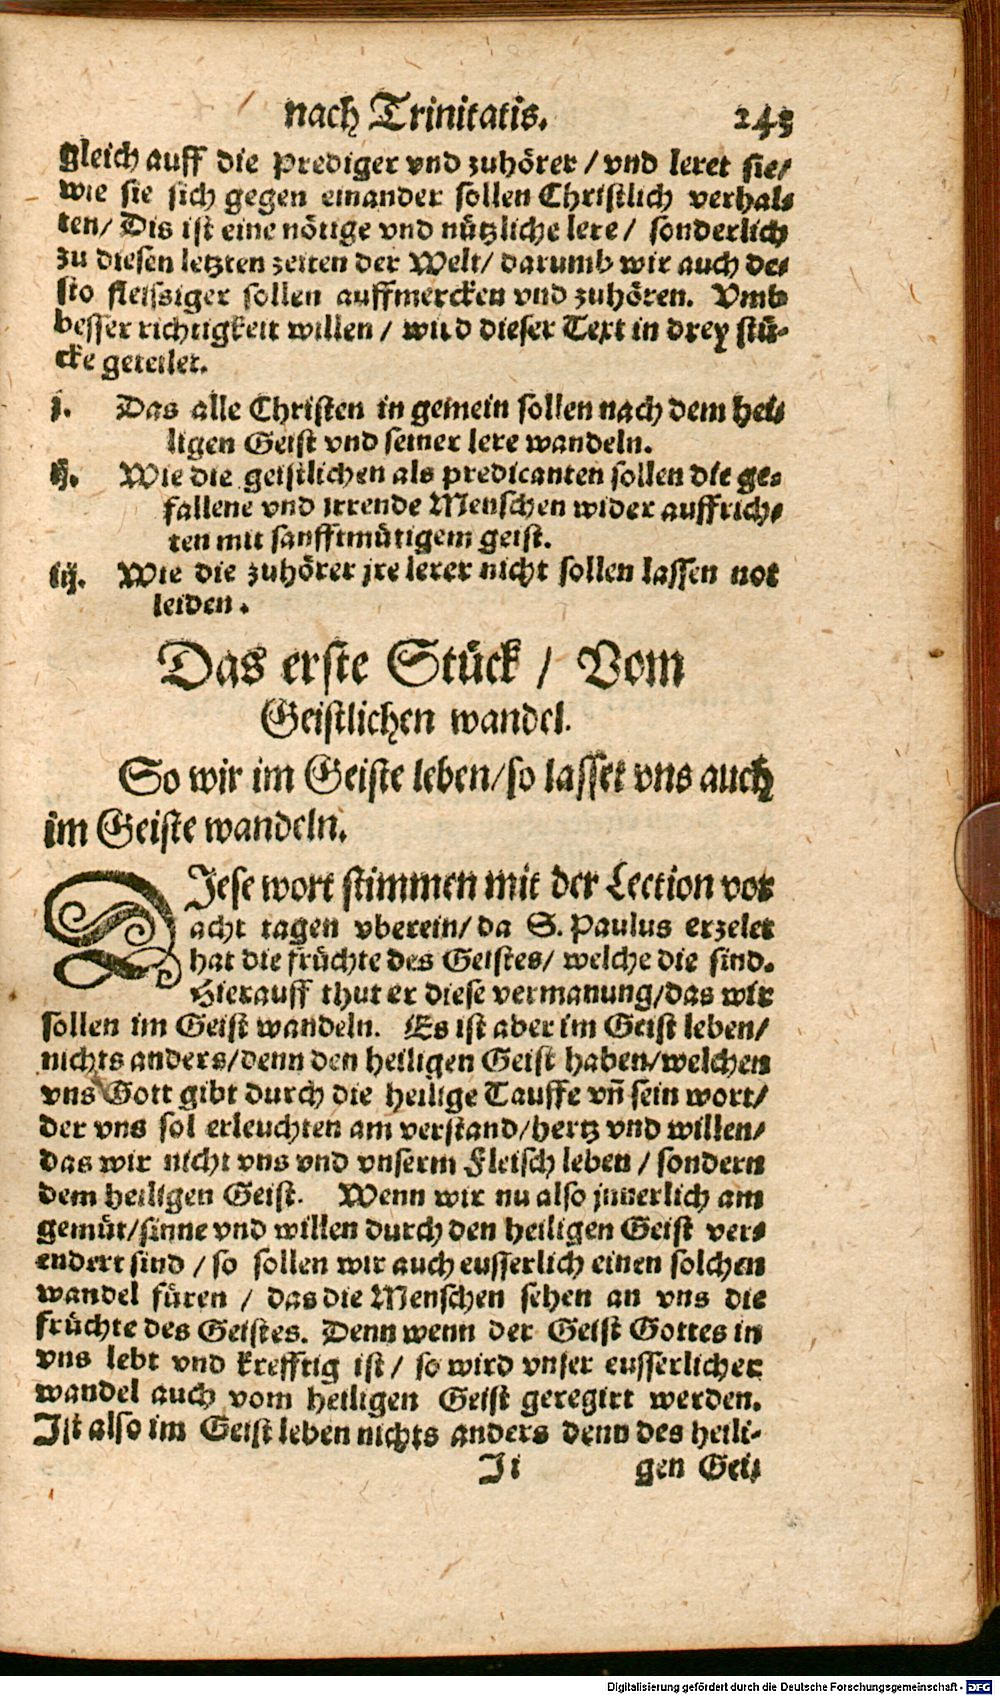 nach Trinitatis. 243
gleich auff die Prediger vnd zuhörer / vnd leret sie/
wie sie sich gegen einander sollen Christlich verhal-
ten/ Dis ist eine nötige vnd nützliche lere / sonderlich
zu diesen letzten zeiten der Welt/ darumb wir auch de-
sto fleissiger sollen auffmercken vnd zuhören. Vmb
besser richtigkeit willen / wird dieser Text in drey stü-
cke geteilet.
j. Das alle Christen in gemein sollen nach dem hei-
ligen Geist vnd seiner lere wandeln.
ij. Wie die geistlichen als predicanten sollen die ge-
fallene vnd jrrende Menschen wider auffrich-
ten mit sanfftmütigem geist.
iij. Wie die zuhörer jre lerer nicht sollen lassen not
leiden.
Das erste Stück / Vom
Geistlichen wandel.
So wir im Geiste leben/so lasset vns auch
im Geiste wandeln.
DJese wort stimmen mit der Lection vor
acht tagen vberein/ da S. Paulus erzelet
hat die früchte des Geistes/ welche die sind.
Hierauff thut er diese vermanung/das wir
sollen im Geist wandeln. Es ist aber im Geist leben/
nichts anders/denn den heiligen Geist haben/welchen
vns Gott gibt durch die heilige Tauffe vñ sein wort/
der vns sol erleuchten am verstand/hertz vnd willen/
das wir nicht vns vnd vnserm Fleisch leben / sondern
dem heiligen Geist. Wenn wir nu also jnnerlich am
gemüt/sinne vnd willen durch den heiligen Geist ver-
endert sind / so sollen wir auch eusserlich einen solchen
wandel füren / das die Menschen sehen an vns die
früchte des Geistes. Denn wenn der Geist Gottes in
vns lebt vnd krefftig ist/ so wird vnser eusserlicher
wandel auch vom heiligen Geist geregirt werden.
Jst also im Geist leben nichts anders denn des heili-
Ji gen Gei-
Digitalisierung gefördert durch die Deutsche Forschungsgemeinschaft - DFG